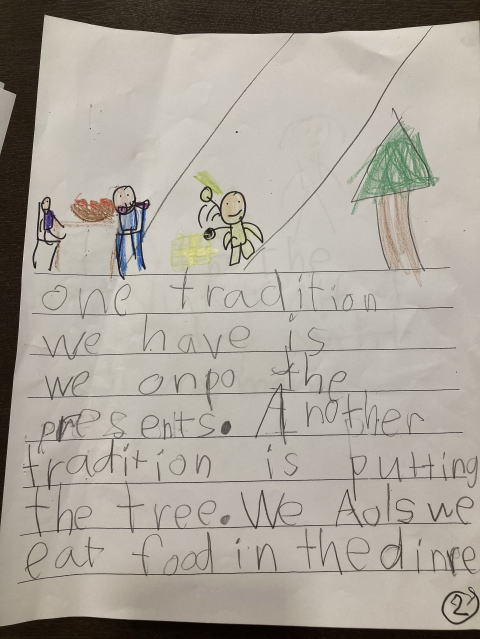 one tradition
we have is
we onpo the
presents. Another
tradition is putting
the tree. We Aols we
eat food in the dinre
2